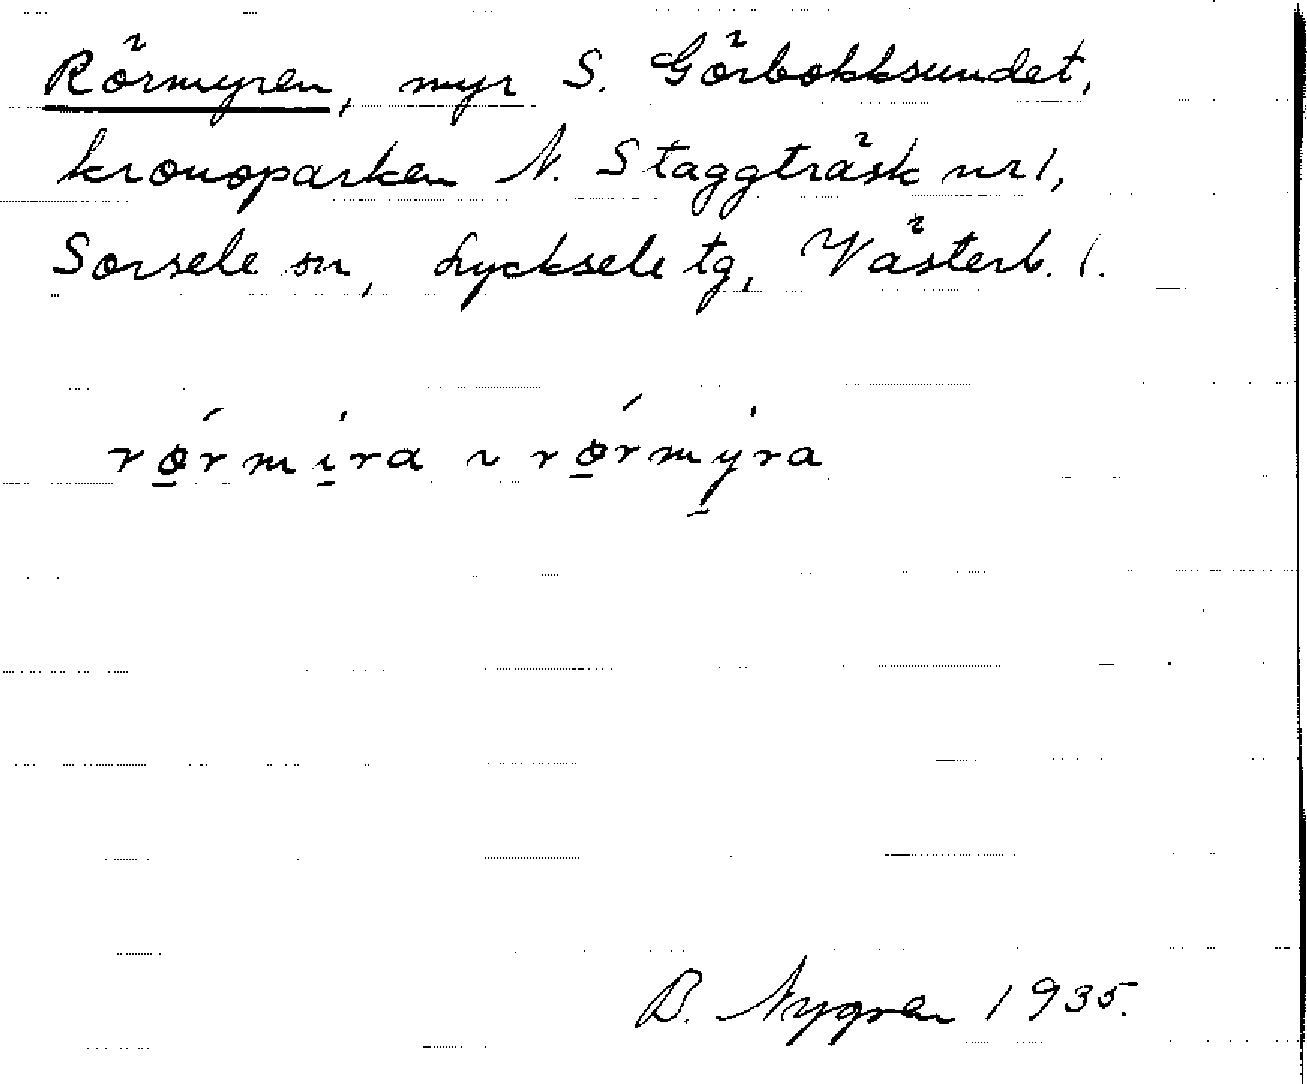 Rörmyren, myr S. Görbokksundet,
kronoparken N. Staggträsk nr 1,
Sorsele sn, Lycksele tg, Västerb. l.
rǿ̱rmi̱ra ~ rǿ̱rmy̱ra
B. Nygren 1935.